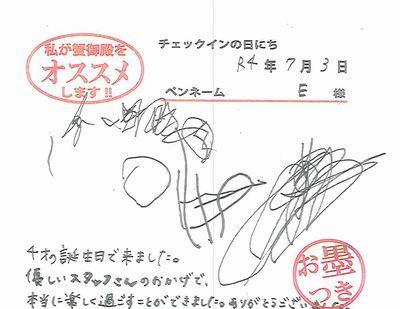 私が蟹御殿を
オススメ
します!!
チェックインの日にち
R4年7月3日
ペンネーム E 様
4才の誕生日で来ました。
優しいスタッフさんのおかげで、
本当に楽しく過ごすことができました。ありがとうござい
お墨つき